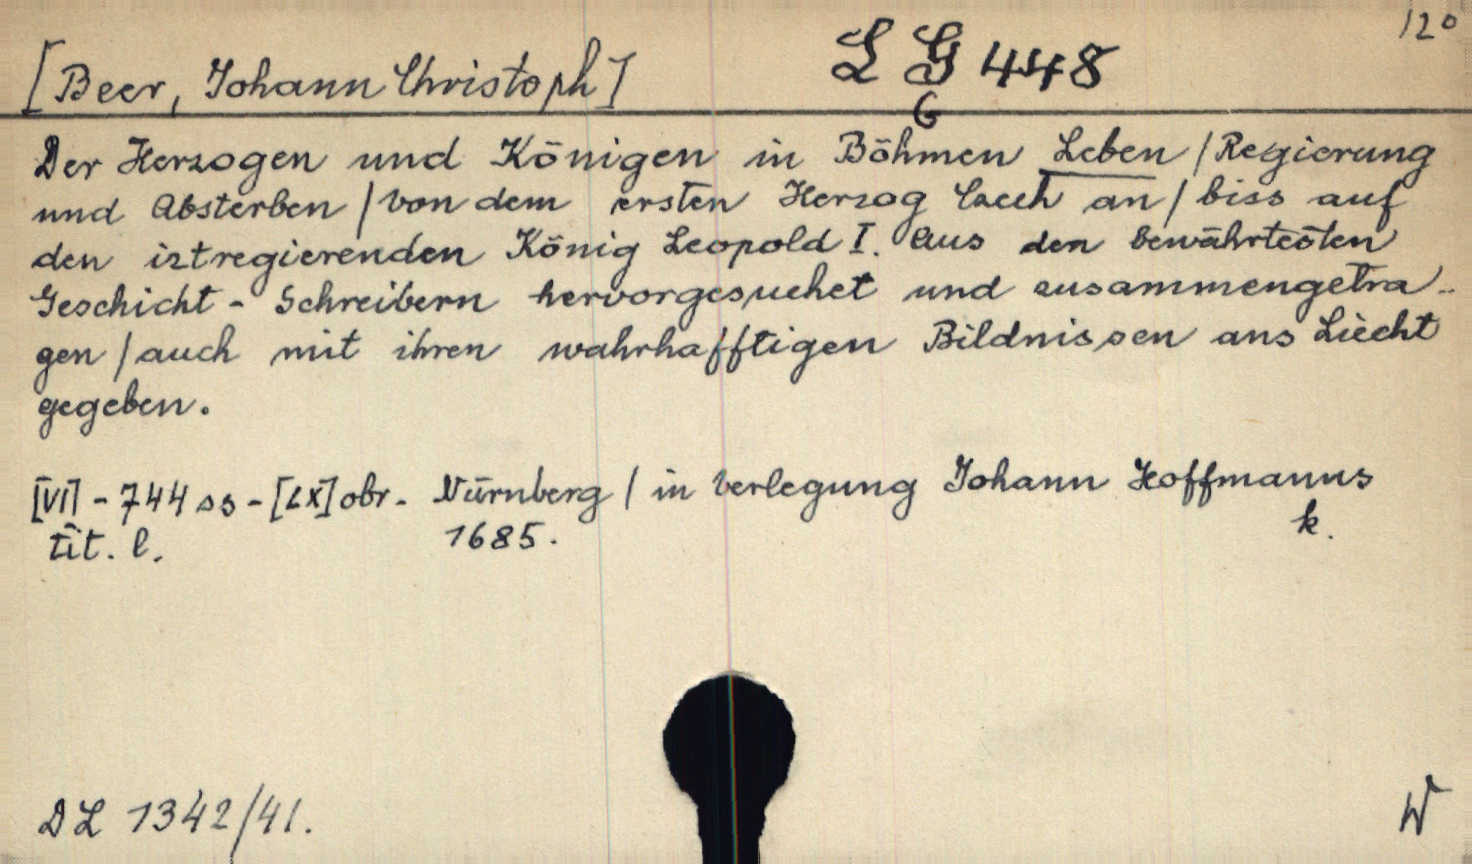 12°
[Beer, Johann Christoph] L G 448
G
Der Herzogen und Königen in Böhmen Leben / Regierung
und Absterben / von dem ersten Herzog Czech an / biss auf
den iztregierenden König Leopold I. Aus den bewährtesten
Geschicht - Schreibern hervorgesuchet und zusammengetra-
gen / auch mit ihren wahrhafftigen Bildnissen ans Liecht
gegeben.
[VI] - 744 ss - [LX] obr. Nürnberg / in Verlegung Johann Hoffmanns
tit. l. 1685. k.
DL 1342/41. W